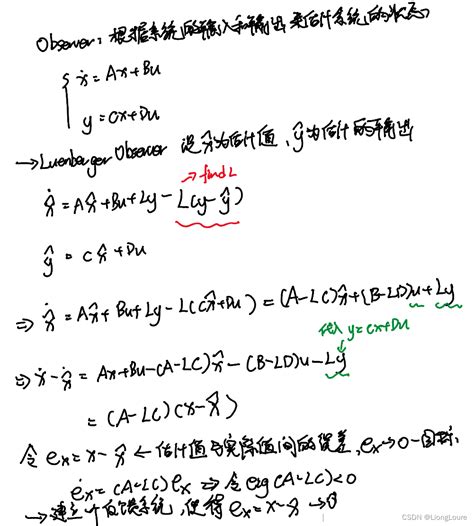 Observer: 根据系统的输入和输出来估计系统的状态
ẋ = Ax+Bu
y = Cx+Du
→Luenberger Observer 设x̂为估计值,ŷ为估计的输出
→find L
x̂̇ = Ax̂+Bu+Ly-L(y-ŷ)
ŷ = Cx̂+Du
⇒ x̂̇ = Ax̂+Bu+Ly-L(Cx̂+Du) = (A-LC)x̂+(B-LD)u+Ly
代入 y=Cx+Du
⇒ ẋ-x̂̇ = Ax+Bu-(A-LC)x̂-(B-LD)u-Ly
= (A-LC)(x-x̂)
令 eₓ=x-x̂ ← 估计值与实际值间的误差, eₓ→0 - 目标
ėₓ=(A-LC)eₓ ⇒ 令 eig(A-LC)<0
→建立一个反馈系统,使得 eₓ=x-x̂→0
CSDN @LiongLoure